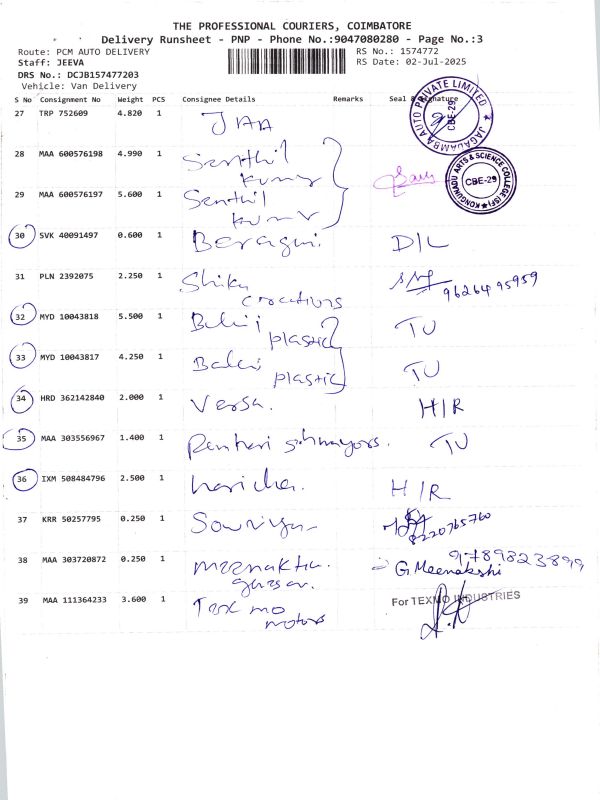 THE PROFESSIONAL COURIERS, COIMBATORE
Delivery Runsheet - PNP - Phone No.:9047080280 - Page No.:3
Route: PCM AUTO DELIVERY RS No.: 1574772
Staff: JEEVA RS Date: 02-Jul-2025
DRS No.: DCJB157477203
Vehicle: Van Delivery
S No Consignment No Weight PCS Consignee Details Remarks Seal & Signature
27 TRP 752609 4.820 1
JAGADAMBA AUTO PRIVATE LIMITED CBE-29
28 MAA 600576198 4.990 1 Senthil
kumar
KONGUNADU ARTS & SCIENCE COLLEGE (SF) CBE-29
29 MAA 600576197 5.600 1 Senthil
kumar
30 SVK 40091497 0.600 1 D/L
31 PLN 2392075 2.250 1
creations
32 MYD 10043818 5.500 1 TU
plastic
33 MYD 10043817 4.250 1 TU
plastic
34 HRD 362142840 2.000 1 Versa. H/R
35 MAA 303556967 1.400 1 TU
36 IXM 508484796 2.500 1 H/R
37 KRR 50257795 0.250 1
8220765760
38 MAA 303720872 0.250 1 9789823899
G. Meenakshi
39 MAA 111364233 3.600 1 Tex mo For TEXMO INDUSTRIES
motors